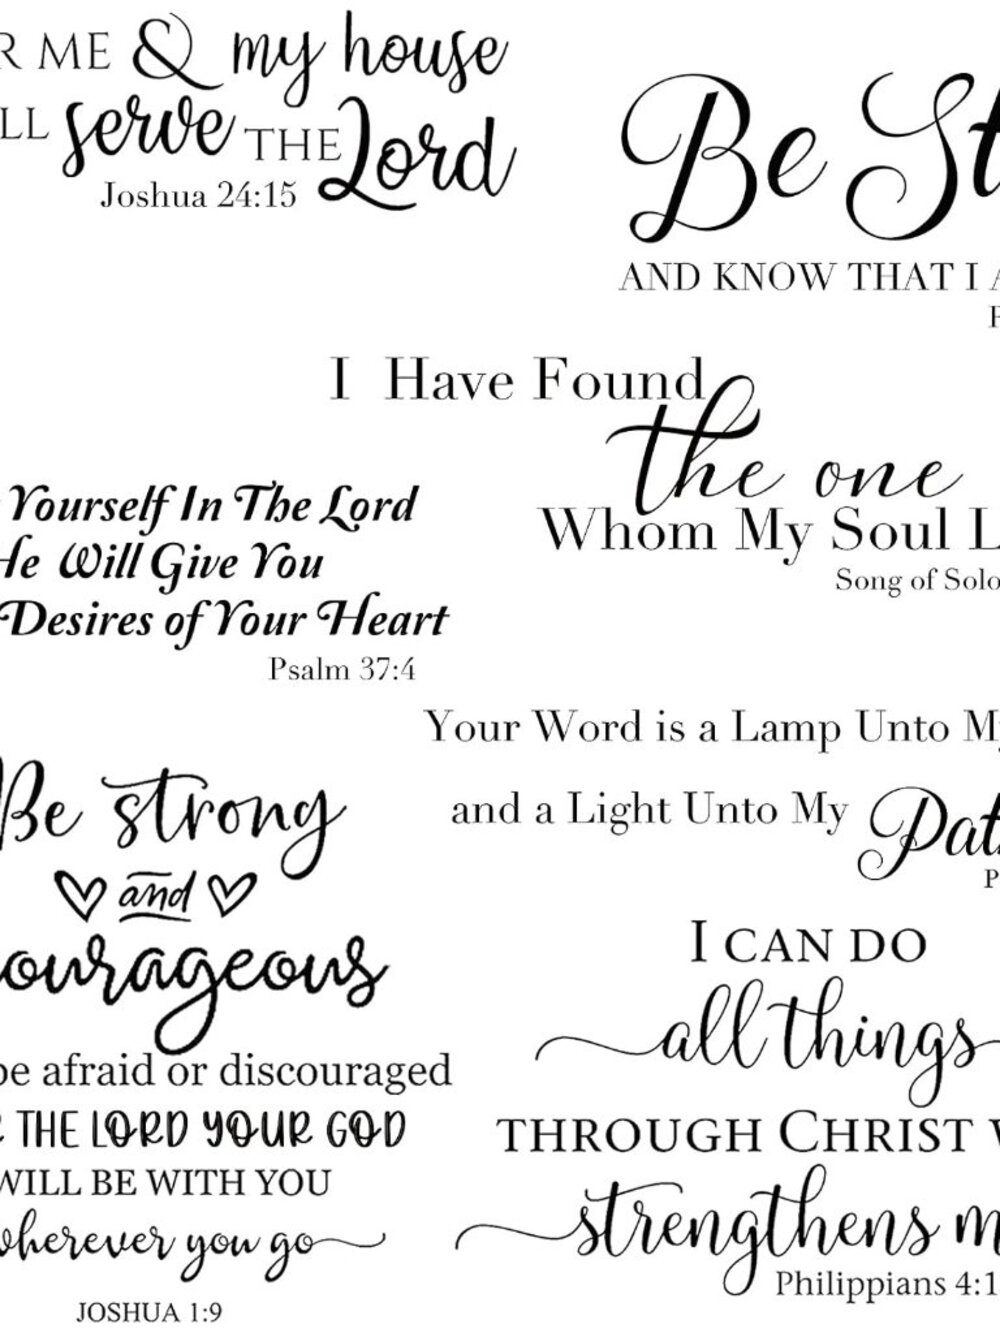 R ME & my house
LL serve THE Lord
Joshua 24:15
Be St
AND KNOW THAT I A
P
I Have Found
the one
Whom My Soul L
Song of Solo
Yourself In The Lord
He Will Give You
Desires of Your Heart
Psalm 37:4
Your Word is a Lamp Unto My
and a Light Unto My Pat
P
Be strong
and
ourageous
be afraid or discouraged
R THE LORD YOUR GOD
WILL BE WITH YOU
wherever you go
JOSHUA 1:9
I CAN DO
all things
THROUGH CHRIST W
strengthens m
Philippians 4:1